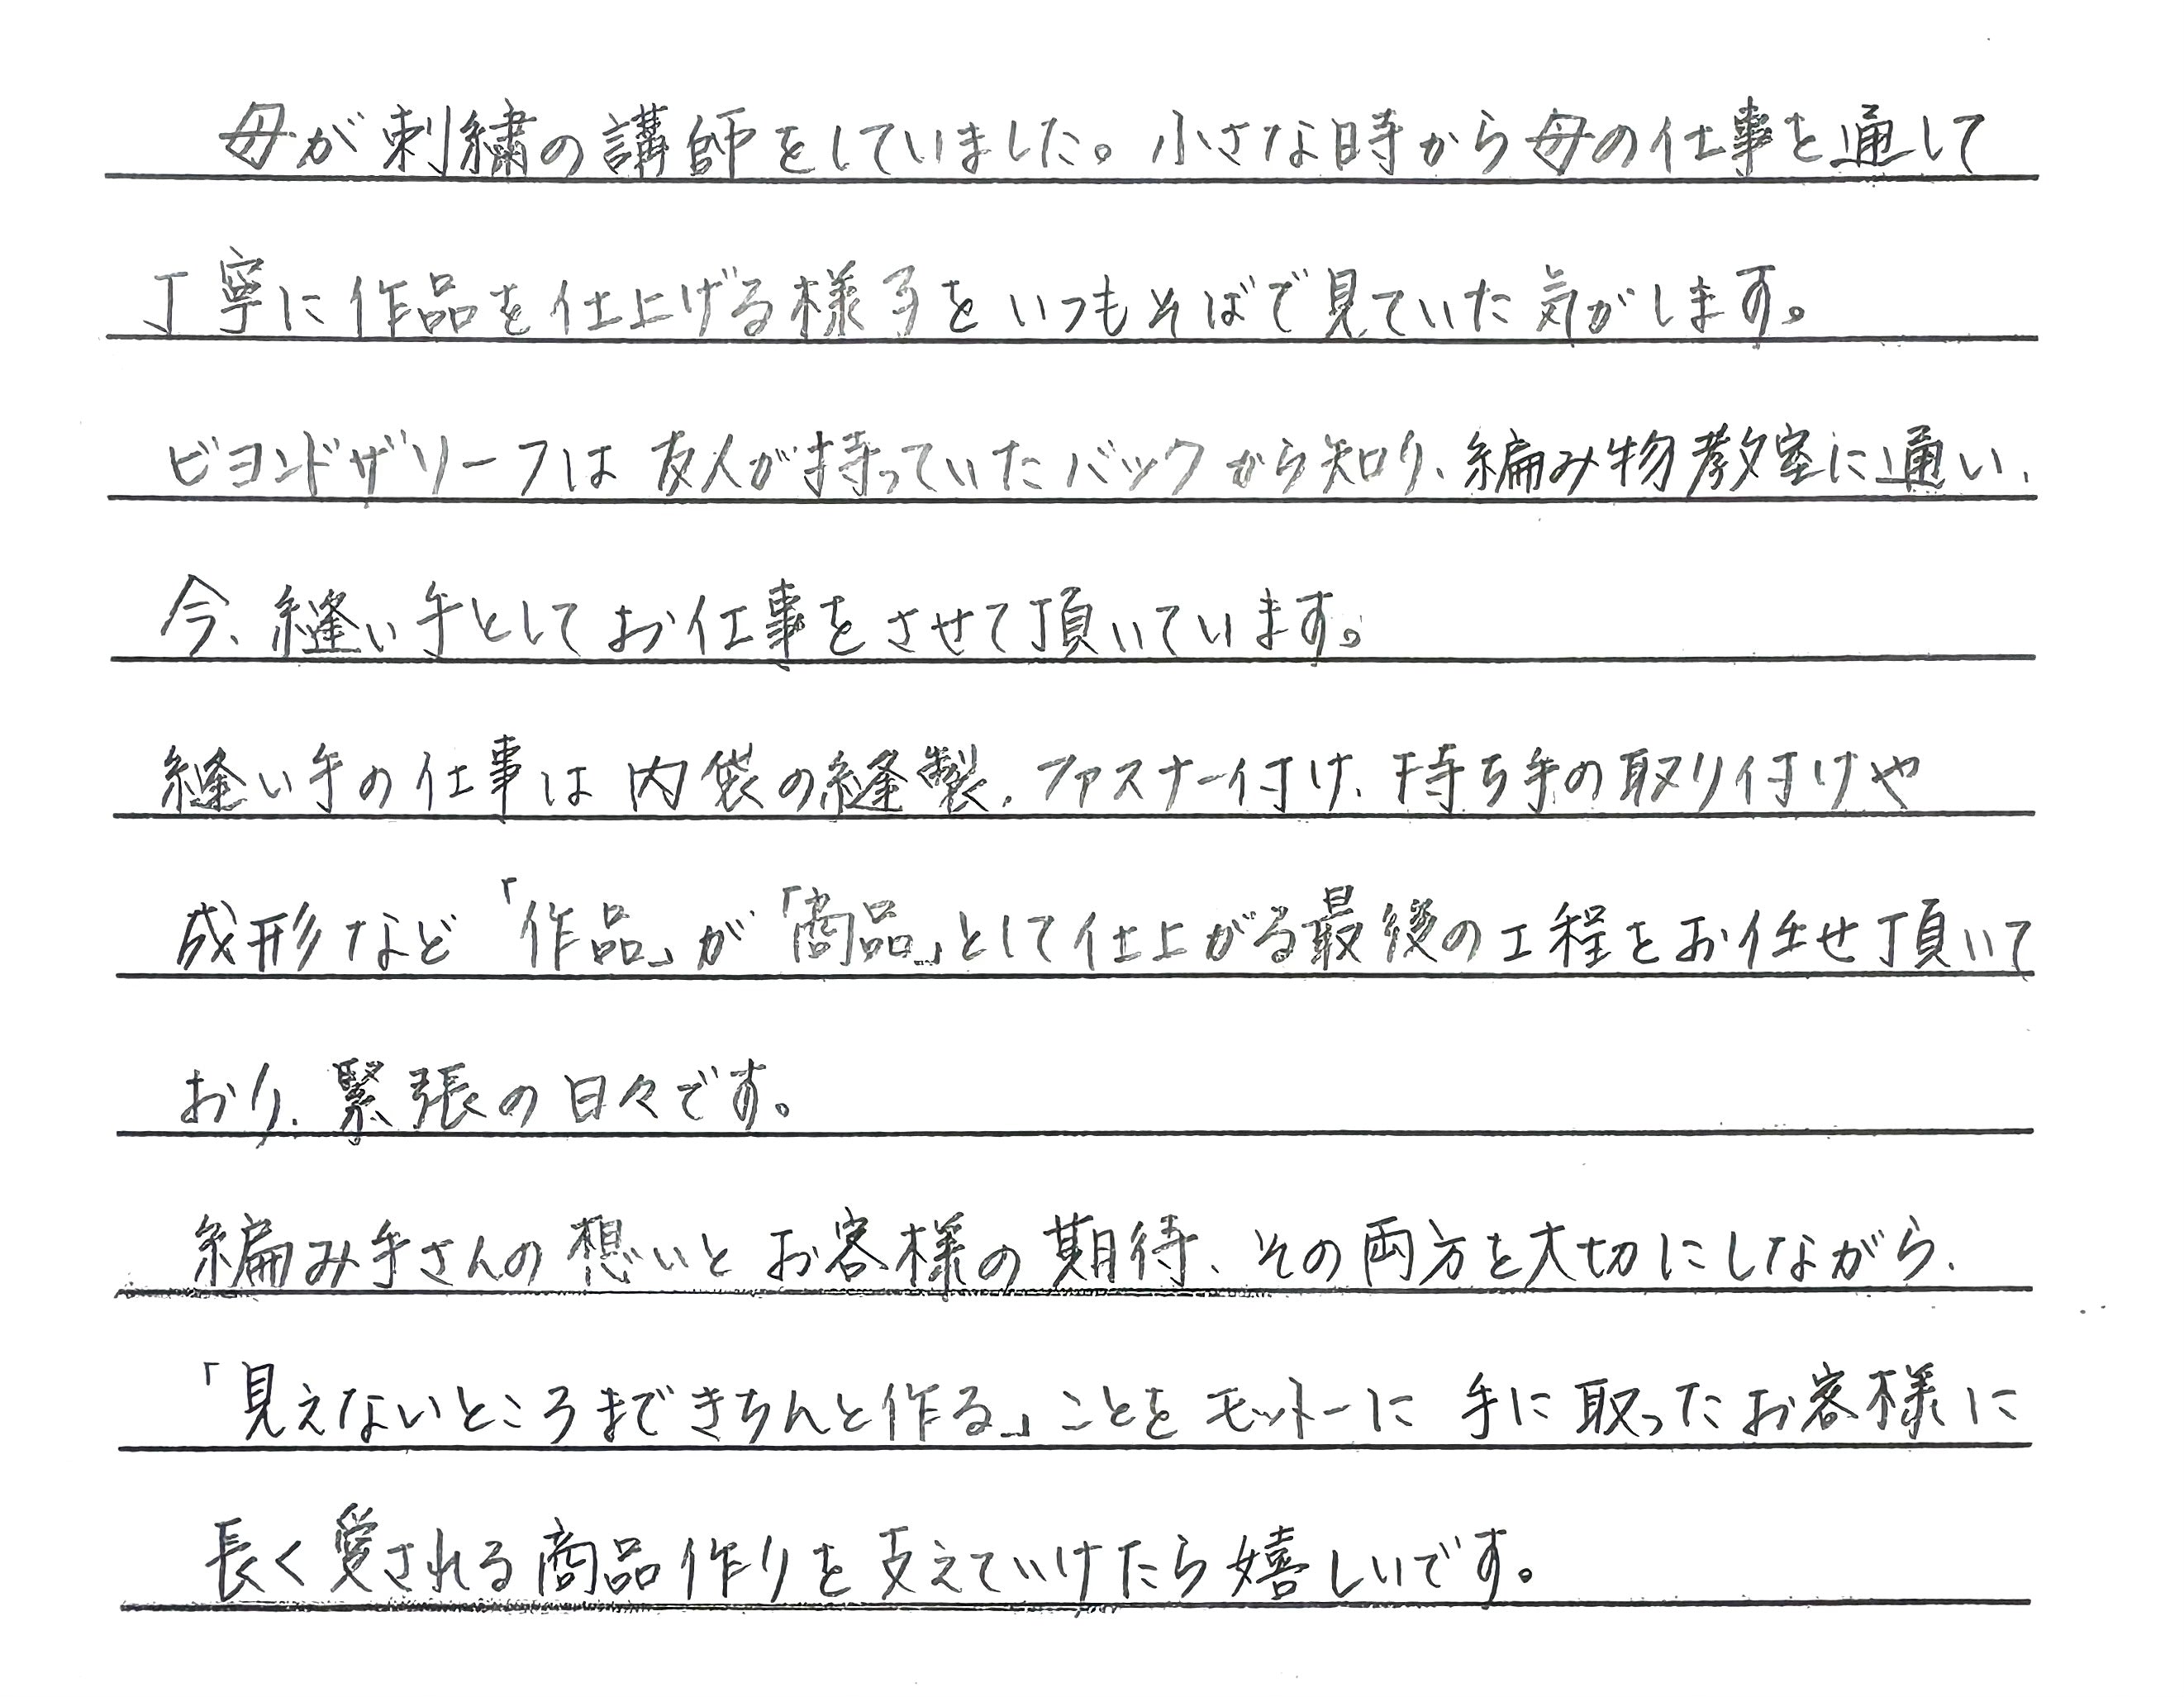 母が刺繍の講師をしていました。小さな時から母の仕事を通して
丁寧に作品を仕上げる様子をいつもそばで見ていた気がします。
ビヨンドザリーフは友人が持っていたバックから知り、編み物教室に通い、
今、縫い手としてお仕事をさせて頂いています。
縫い手の仕事は内袋の縫製、ファスナー付け、持ち手の取り付けや
成形など「作品」が「商品」として仕上がる最後の工程をお任せ頂いて
おり、緊張の日々です。
編み手さんの想いとお客様の期待、その両方を大切にしながら、
「見えないところまできちんと作る」ことをモットーに手に取ったお客様に
長く愛される商品作りを支えていけたら嬉しいです。